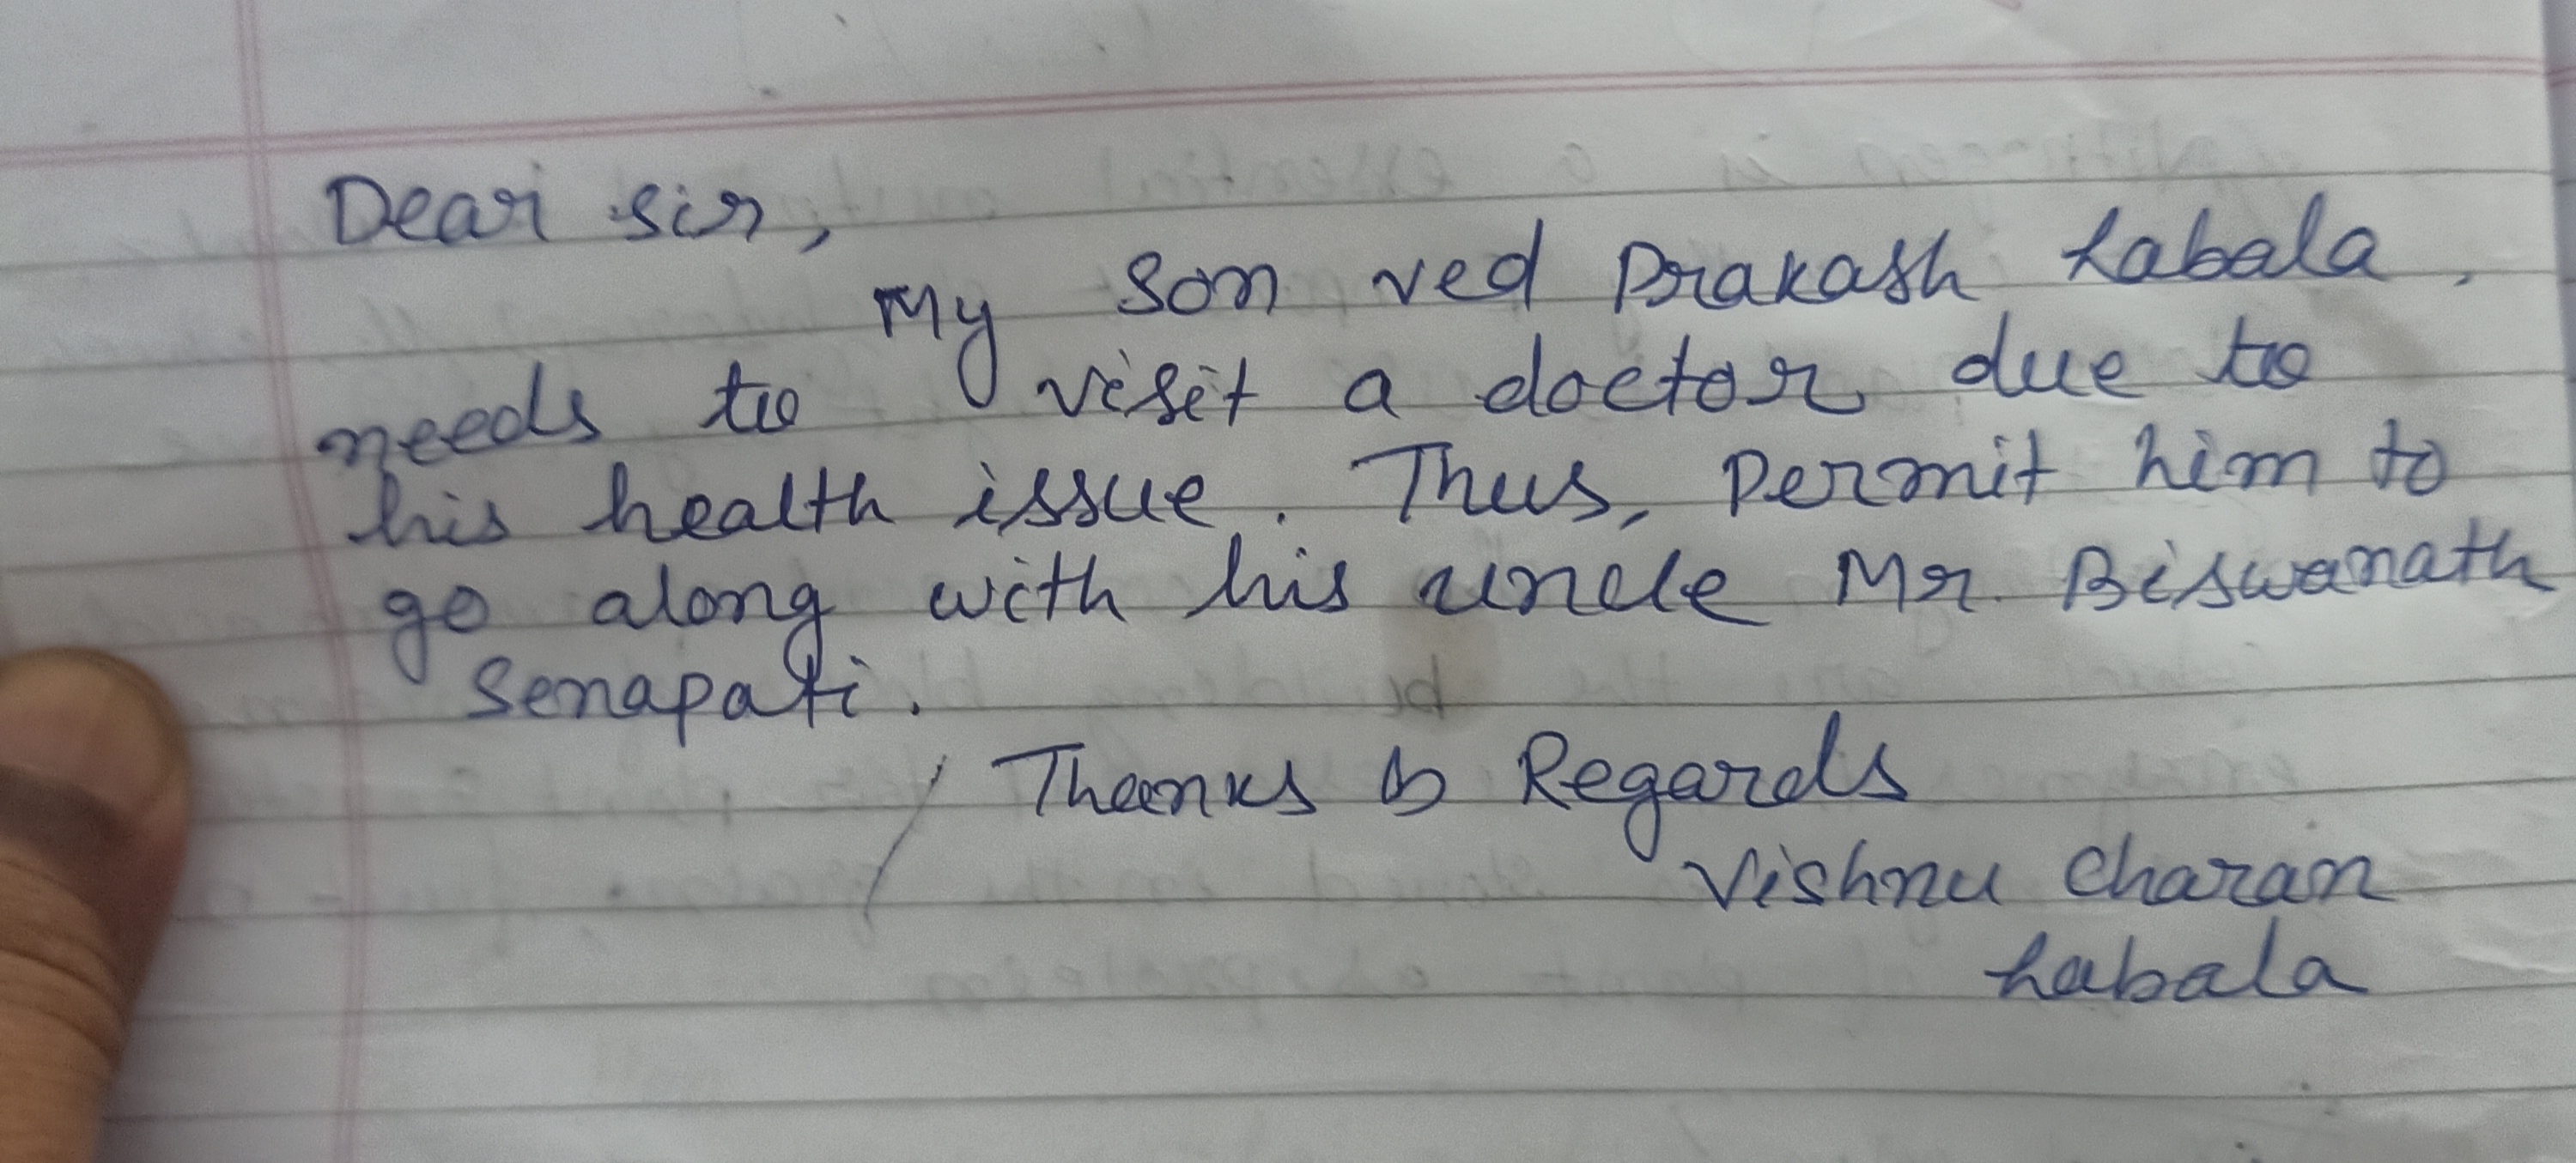 Dear sir,
My son ved Prakash Labala,
needs to visit a doctor due to
his health issue. Thus, Permit him to
go along with his uncle Mr. Biswanath
Senapati.
Thanks & Regards
Vishnu Charan
Labala